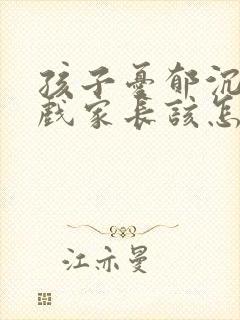 孩子憂郁沉
戲家长該怎
江亦曼